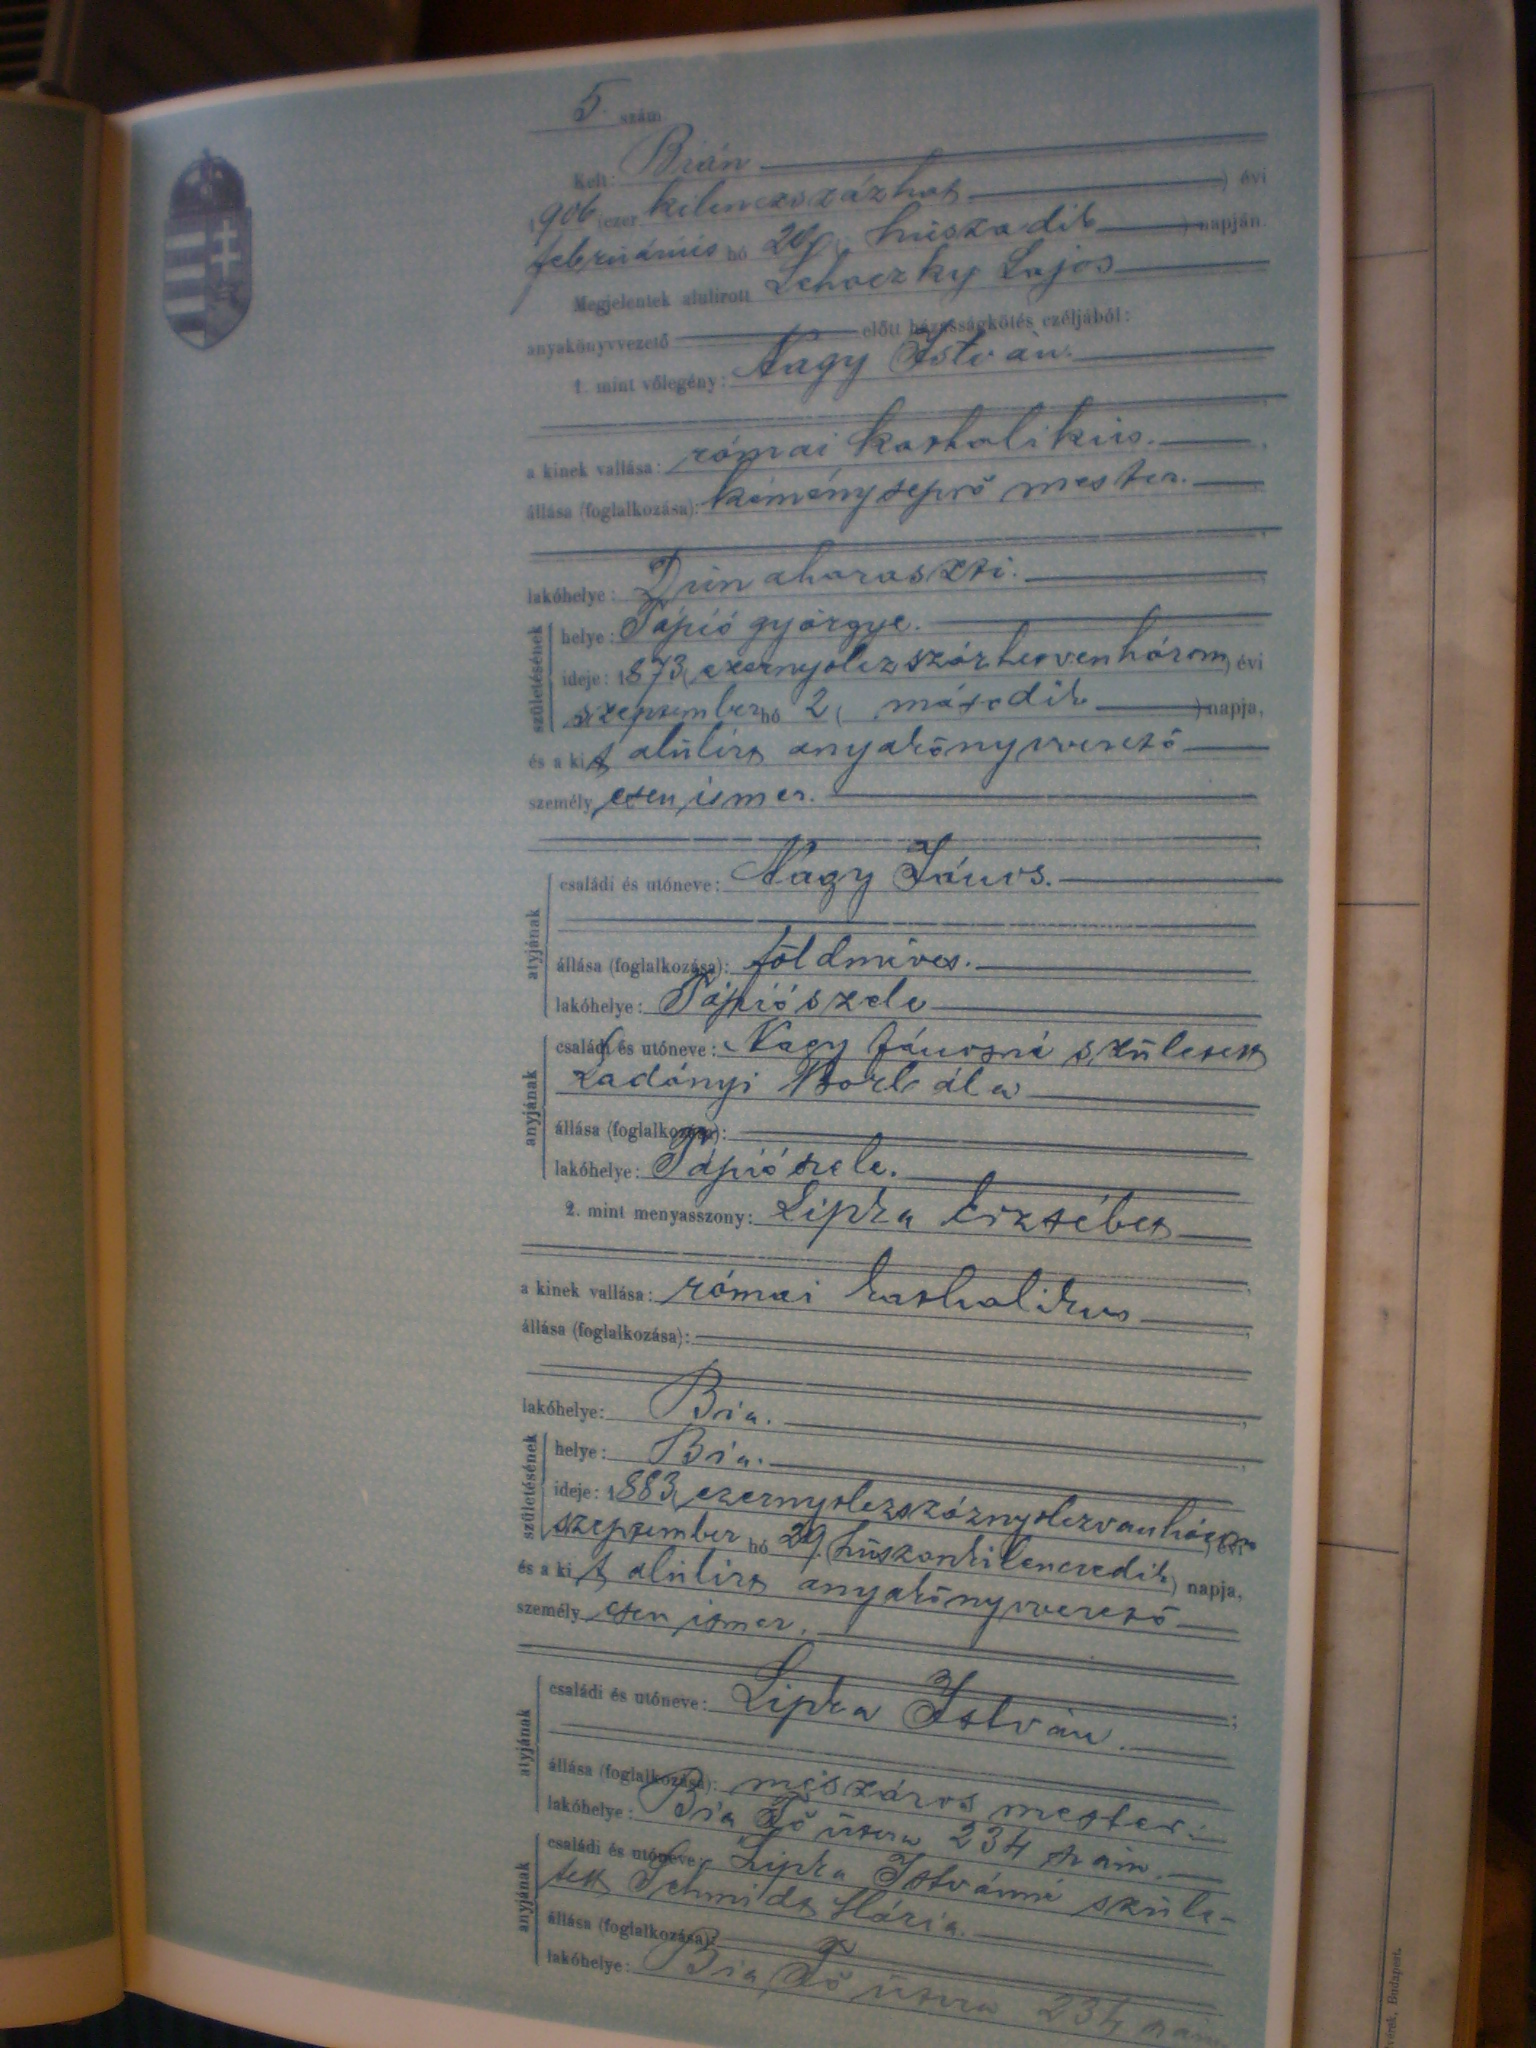 5. szám
Kelt: Bián
1906 (ezer kilenczszázhat ) évi
februárius hó 20 ( huszadik ) napján.
Megjelentek alulirott Lehoczky Lajos
anyakönyvvezető előtt házasságkötés czéljából:
1. mint vőlegény: Nagy István.
a kinek vallása: római katholikus.
állása (foglalkozása): kéményseprő mester.
lakóhelye: Dunaharaszti.
születésének
helye: Tápió györgye.
ideje: 1873 (ezernyolczszázhetvenhárom) évi
szeptember hó 2 ( második ) napja,
és a kit alulirt anyakönyvvezető
személyesen ismer.
atyjának
családi és utóneve: Nagy János.
állása (foglalkozása): földmíves.
lakóhelye: Tápiószele
anyjának
családi és utóneve: Nagy Jánosné született
Zadányi Borbála
állása (foglalkozása):
lakóhelye: Tápiószele.
2. mint menyasszony: Lipka Erzsébet
a kinek vallása: római katholikus
állása (foglalkozása):
lakóhelye: Bia.
születésének
helye: Bia.
ideje: 1883 (ezernyolczszáznyolczvanhárom) évi
szeptember hó 29 (huszonkilenczedik) napja,
és a kit alulirt anyakönyvvezető
személyesen ismer.
atyjának
családi és utóneve: Lipka István.
állása (foglalkozása): mészáros mester.
lakóhelye: Bia Fő utcza 234 szám.
anyjának
családi és utóneve: Lipka Istvánné szüle-
tett Schmidt Mária.
állása (foglalkozása):
lakóhelye: Bia Fő utcza 234 szám
Budapest.